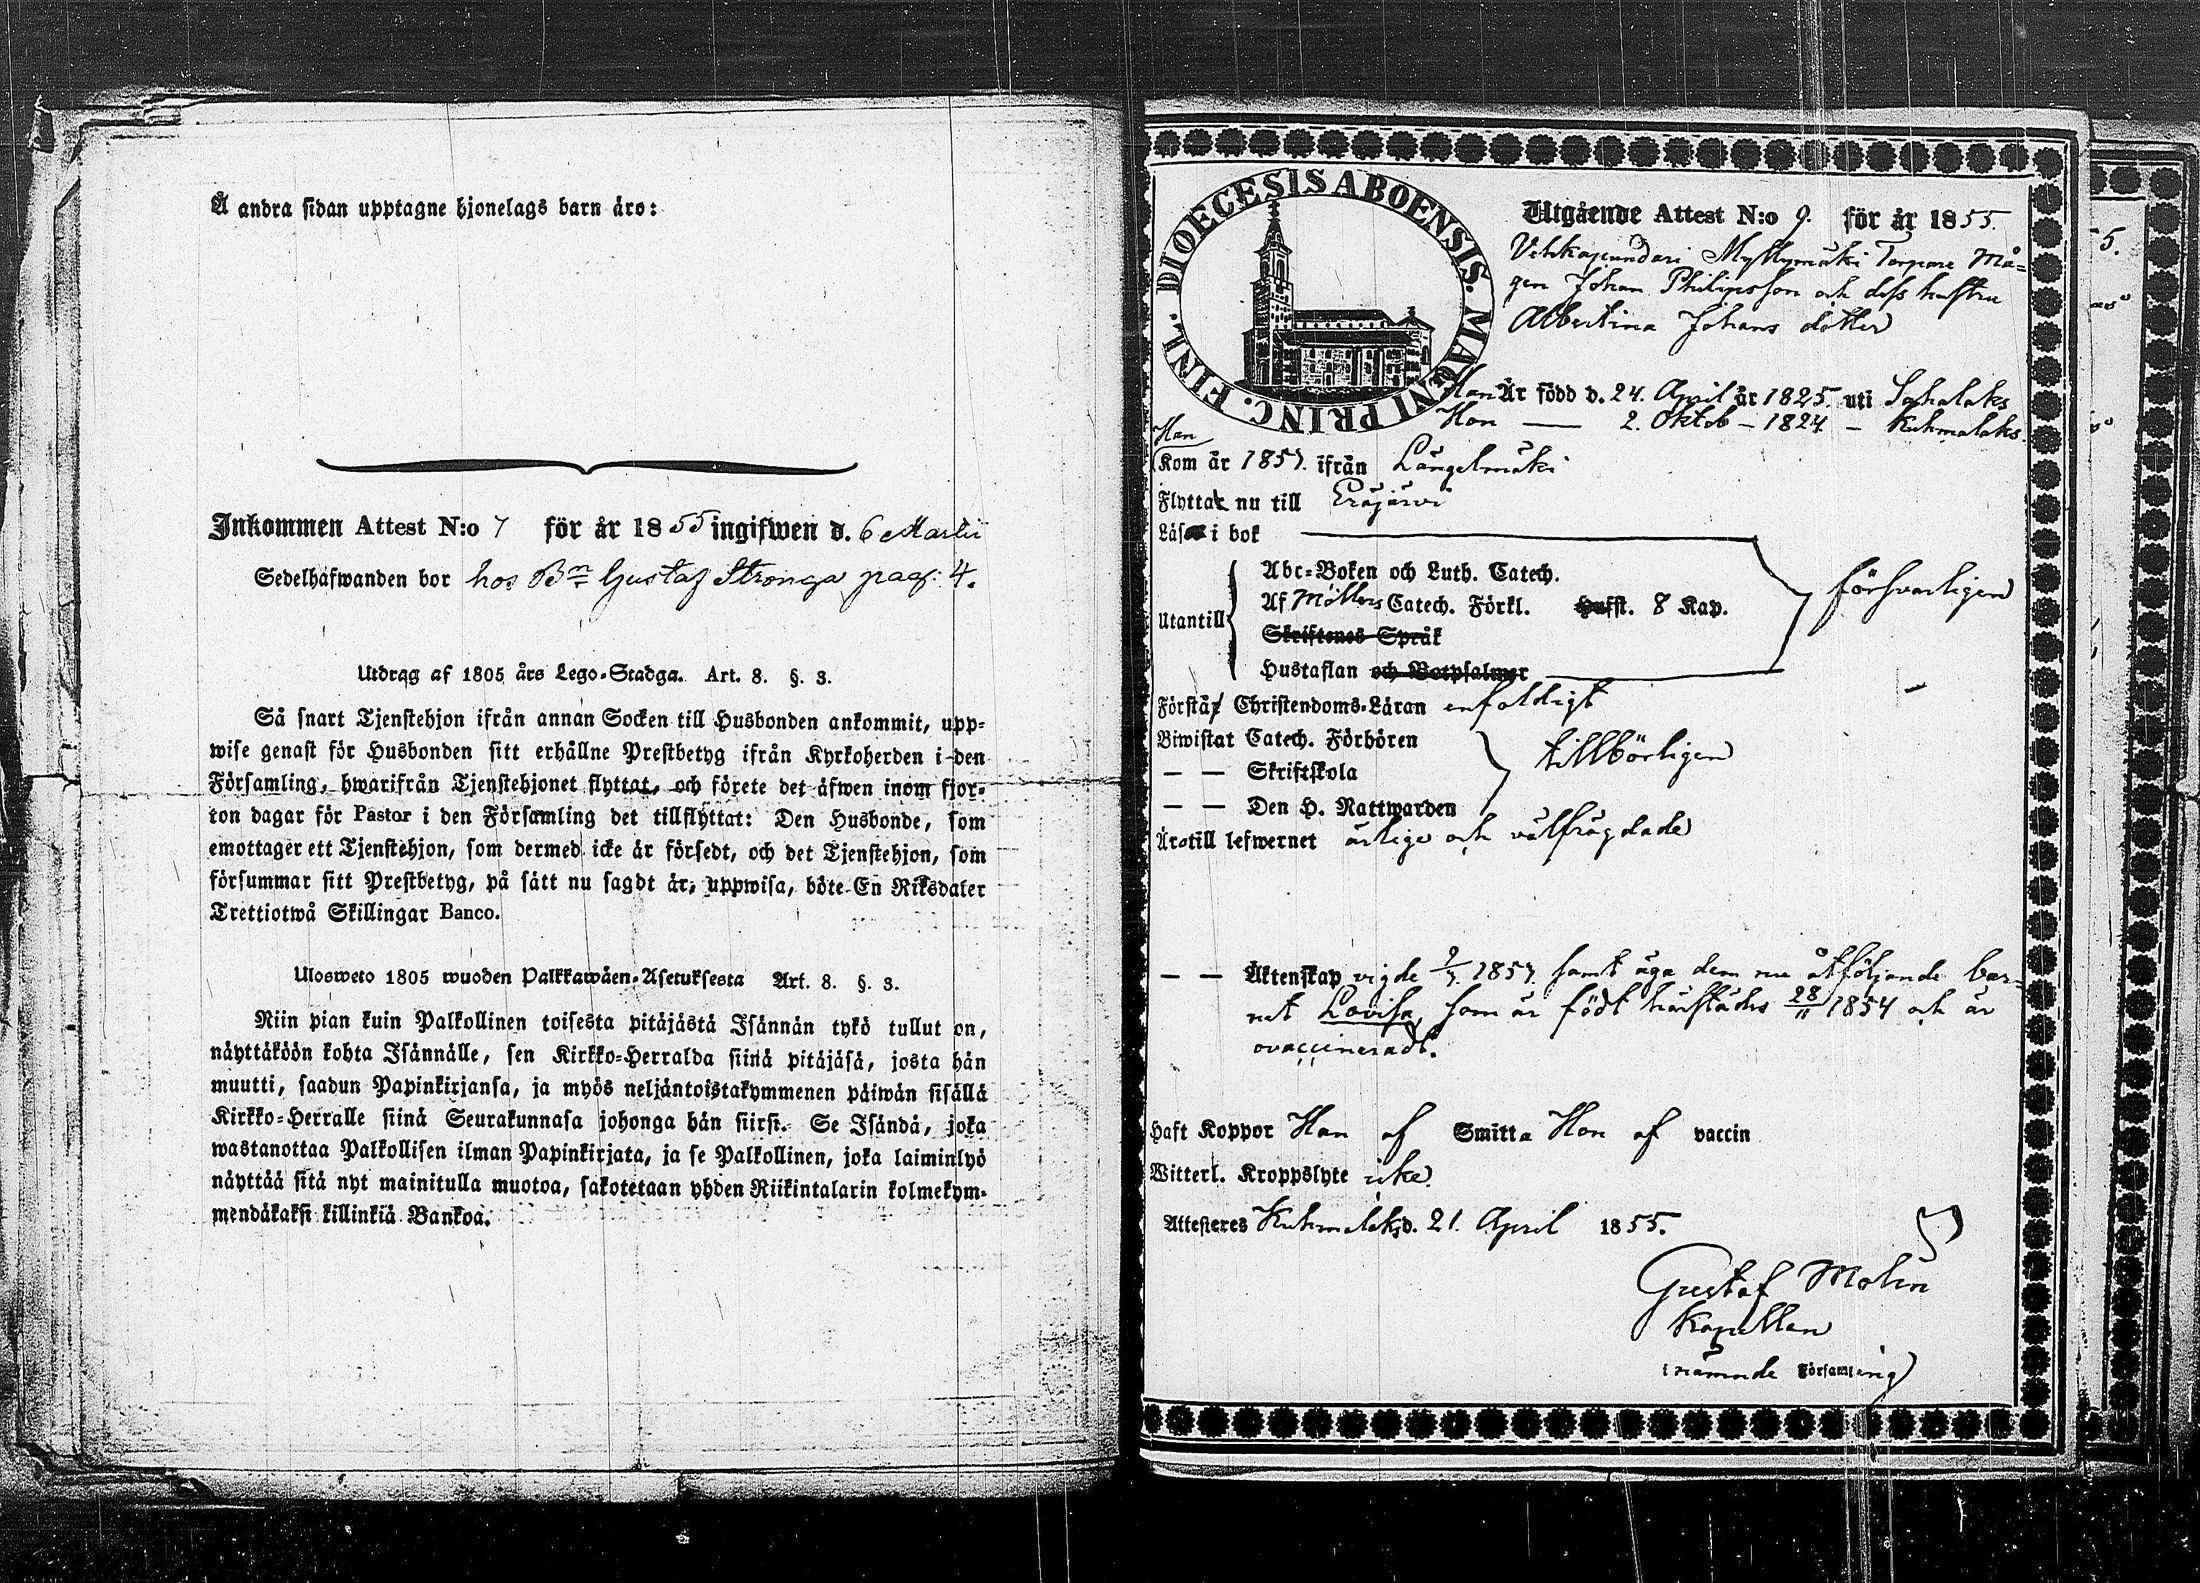 Å andra sidan upptagne hjonelags barn äro:
Inkommen Attest N:o 7 för år 1855 ingifwen d. 6 Martii
Sedelhafwanden bor hos Bn Gustaf Stronga pag: 4.
Utdrag af 1805 års Lego-Stadga. Art. 8. §. 3.
Så snart Tjenstehjon ifrån annan Socken till Husbonden ankommit, upp-
wise genast för Husbonden sitt erhållne Prestbetyg ifrån Kyrkoherden i den
Församling, hwarifrån Tjenstehjonet flyttat, och förete det äfwen inom fjor-
ton dagar för Pastor i den Församling det tillflyttat: Den Husbonde, som
emottager ett Tjenstehjon, som dermed icke är försedt, och det Tjenstehjon, som
försummar sitt Prestbetyg, på sätt nu sagdt är, uppwisa, böte En Riksdaler
Trettiotwå Skillingar Banco.
Ulosweto 1805 wuoden Palkkawäen-Asetuksesta Art. 8. §. 3.
Niin pian kuin Palkollinen toisesta pitäjästä Isännän tykö tullut on,
näyttäköön kohta Isännälle, sen Kirkko-Herralda siinä pitäjäsä, josta hän
muutti, saadun Papinkirjansa, ja myös neljäntoistakymmenen päiwän sisällä
Kirkko-Herralle siinä Seurakunnasa johonga hän siirsi. Se Isändä, joka
wastanottaa Palkollisen ilman Papinkirjata, ja se Palkollinen, joka laiminlyö
näyttää sitä nyt mainitulla muotoa, sakotetaan yhden Riikintalarin kolmekym-
mendäkaksi killinkiä Bankoa.
DIOECESIS ABOENSIS. MAGNI PRINC. FINL.
Utgående Attest N:o 9. för år 1855.
Vehkapundari Myllymäki Torpare Må-
gen Johan Philipsson och dess hustru
Albertina Johans dotter
Han Är född d. 24. April år 1825. uti Sahalaks
Hon — 2. Oktob – 1824 – Kuhmalaks.
Han
Kom år 1851. ifrån Längelmäki
Flytta nu till Eräjärvi
Läsa i bok
Abc-Boken och Luth. Catech.
Af Möllers Catech. Förkl. Hufst. 8 Kap.
Utantill
försvarligen
Skriftenes Språk
Hustaflan och Botpsalmer
Förstår Christendoms-Läran enfaldigt
Biwistat Catech. Förhören
— — Skriftskola
tillbörligen
— — Den H. Nattwarden
Äro till lefwernet ärlige och välfrägdade
— — Äktenskap vigde 9/7. 1851. samt äga dem nu åtföljande bar-
net Lovisa, som är födt härstädes 28/11 1854 och är
ovaccineradt.
Haft Koppor Han af Smitta Hon af vaccin
Witterl. Kroppslyte icke
Attesteres Kuhmalaks d. 21. April 1855.
Gustaf Molin
Kapellan
i nämnde Församling
5.